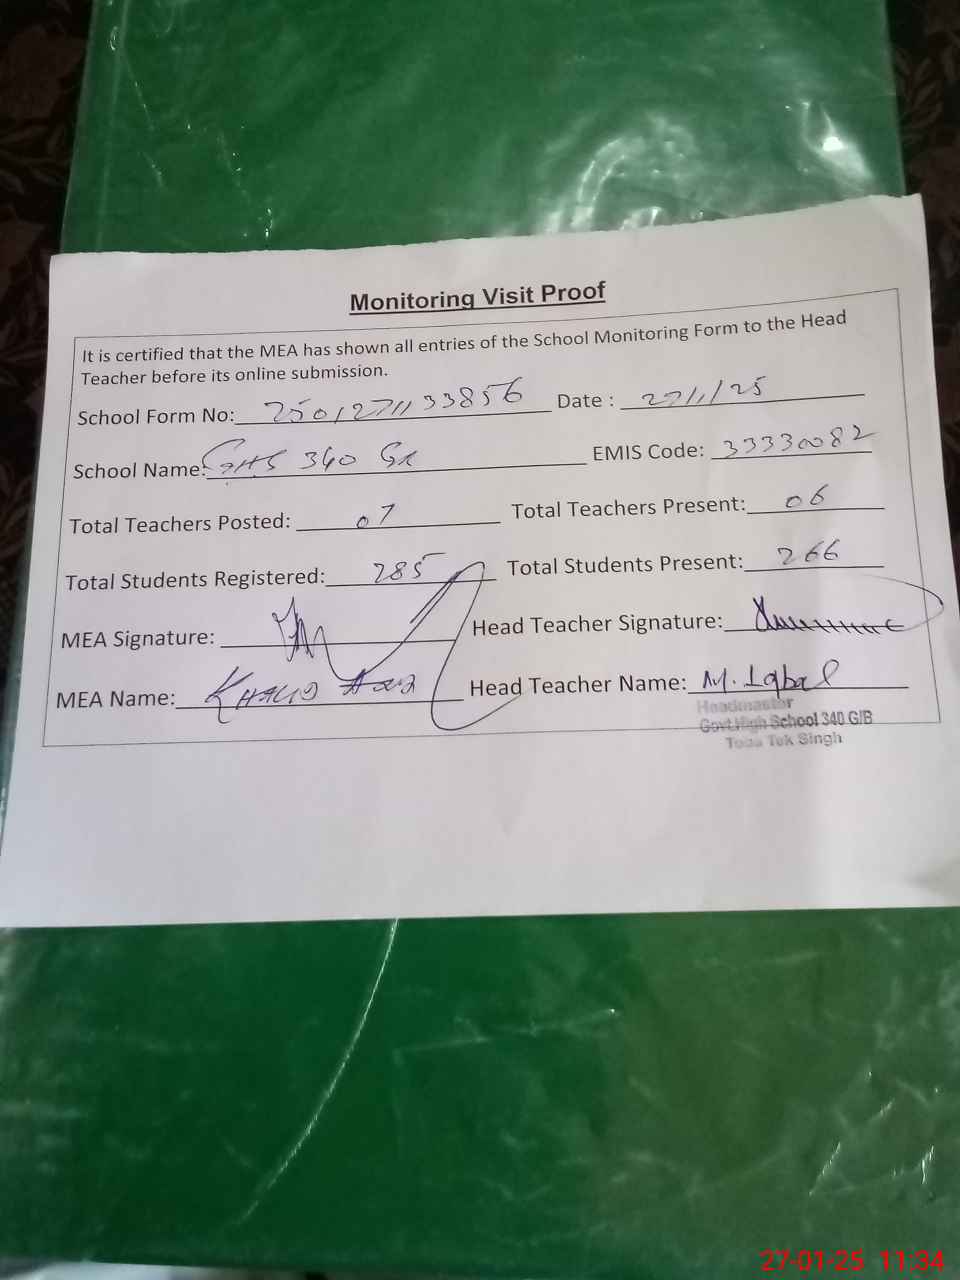 Monitoring Visit Proof
It is certified that the MEA has shown all entries of the School Monitoring Form to the Head
Teacher before its online submission.
School Form No: 2501271133856 Date : 27/1/25
School Name: GHS 340 GB EMIS Code: 33330082
Total Teachers Posted: 07 Total Teachers Present: 06
Total Students Registered: 285 Total Students Present: 266
MEA Signature: Head Teacher Signature:
MEA Name: KHALID Head Teacher Name: M. Iqbal
Headmaster
Govt.High School 340 G/B
Toba Tek Singh
27-01-25 11:34